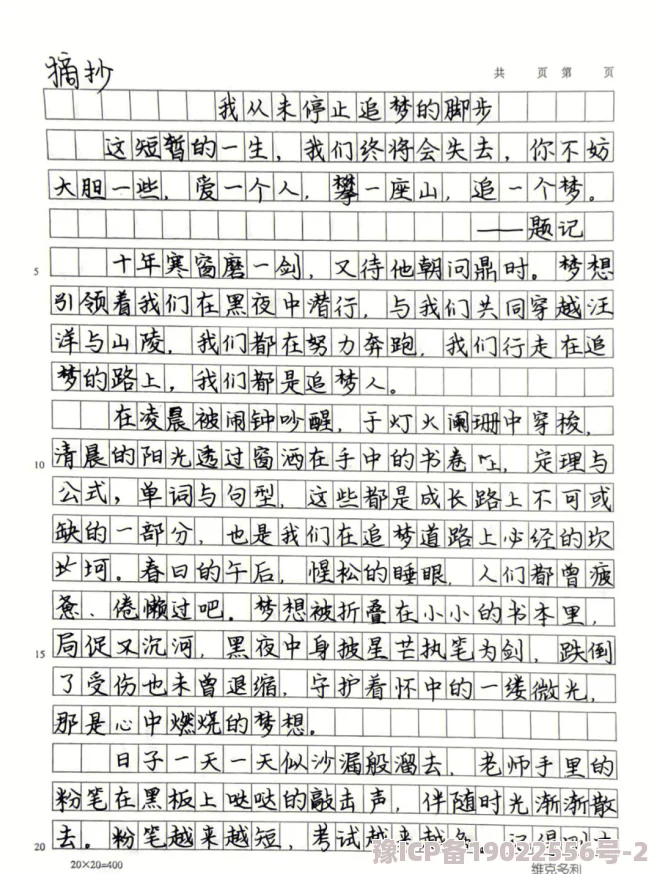 摘抄
共 页 第 页
我从未停止追梦的脚步
这短暂的一生，我们终将会失去，你不妨
大胆一些，爱一个人，攀一座山，追一个梦。
——题记
5 十年寒窗磨一剑，又待他朝问鼎时。梦想
引领着我们在黑夜中潜行，与我们共同穿越汪
洋与山陵，我们都在努力奔跑，我们行走在追
梦的路上，我们都是追梦人。
在凌晨被闹钟吵醒，于灯火阑珊中穿梭，
10 清晨的阳光透过窗洒在手中的书卷上，定理与
公式，单词与句型，这些都是成长路上不可或
缺的一部分，也是我们在追梦道路上必经的坎
坷。春日的午后，惺松的睡眼，人们都曾疲
惫、倦懒过吧。梦想被折叠在小小的书本里，
15 局促又沉河，黑夜中身披星芒执笔为剑，跌倒
了受伤也未曾退缩，守护着怀中的一缕微光，
那是心中燃烧的梦想。
日子一天一天似沙漏般溜去，老师手里的
粉笔在黑板上哒哒的敲击声，伴随时光渐渐散
20 去。粉笔越来越短，考试越来越多，记得
20×20=400
维克多利
豫ICP备19022556号-2